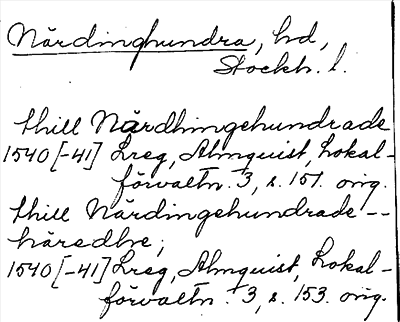 Närdinghundra, hd,
Stockh. l.
thill Närdhingehundrade
1540[-41] Lreg, Almquist, Lokal-
förvaltn. 3, s. 151. orig.
thill Närdingehundrade --
häredhe;
1540[-41] Lreg, Almquist, Lokal-
förvaltn. 3, s. 153. orig.